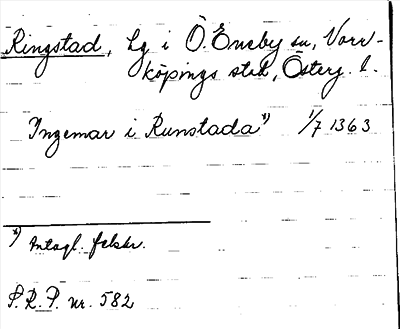 Ringstad, lg i Ö. Eneby sn, Norr-
köpings stad, Österg. l.
Ingemar i Runstada*) 1/7 1363
*) Antagl. felskr.
S.R.P. nr. 582